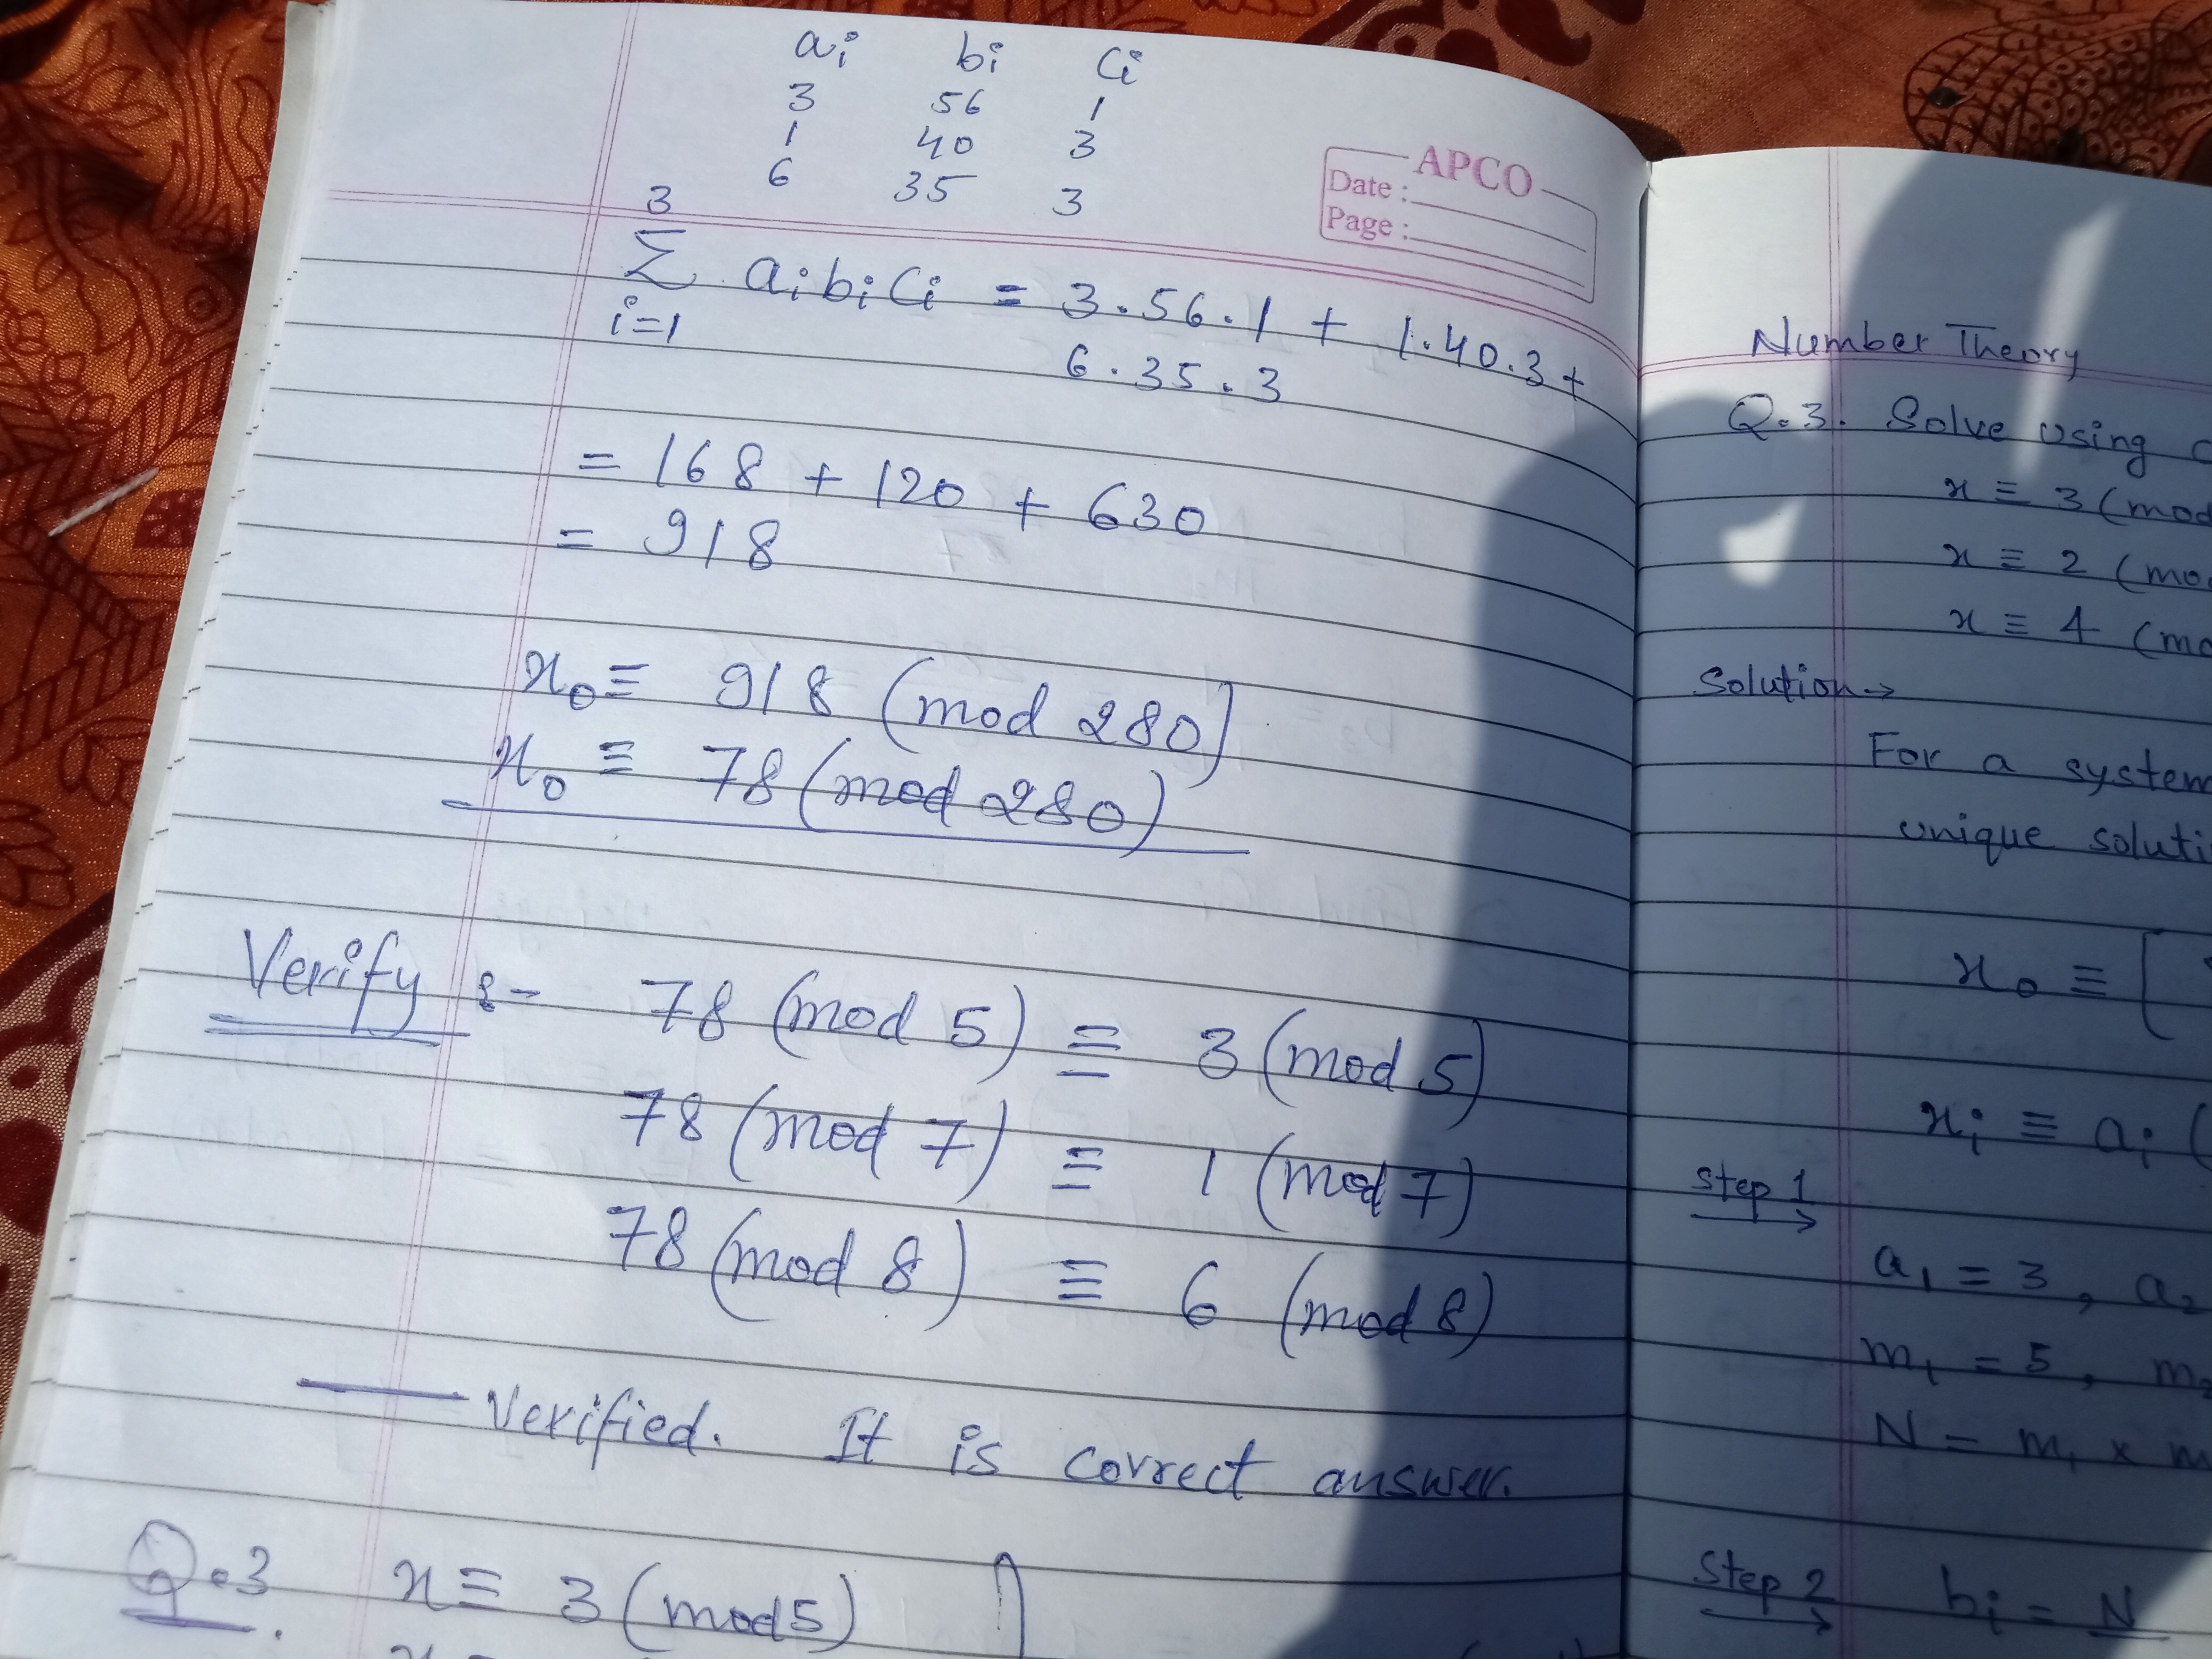 ai bi Ci
3 56 1
1 40 3
6 35 3
APCO
Date :
Page :
3
Σ aibiCi = 3.56.1 + 1.40.3 +
i=1
6.35.3
= 168 + 120 + 630
= 918
x0 ≡ 918 (mod 280)
x0 ≡ 78 (mod 280)
Verify :- 78 (mod 5) ≡ 3 (mod 5)
78 (mod 7) ≡ 1 (mod 7)
78 (mod 8) ≡ 6 (mod 8)
Verified. It is correct answer.
Q.3. x ≡ 3 (mod 5)
Number Theory
Q.3. Solve using
x ≡ 3 (mod
x ≡ 2 (mo
x ≡ 4 (mo
Solution →
For a system
unique soluti
x0 ≡ [
xi ≡ ai (
Step 1
a1 = 3, a2
m1 = 5, m2
N = m1 × m
Step 2 bi = N